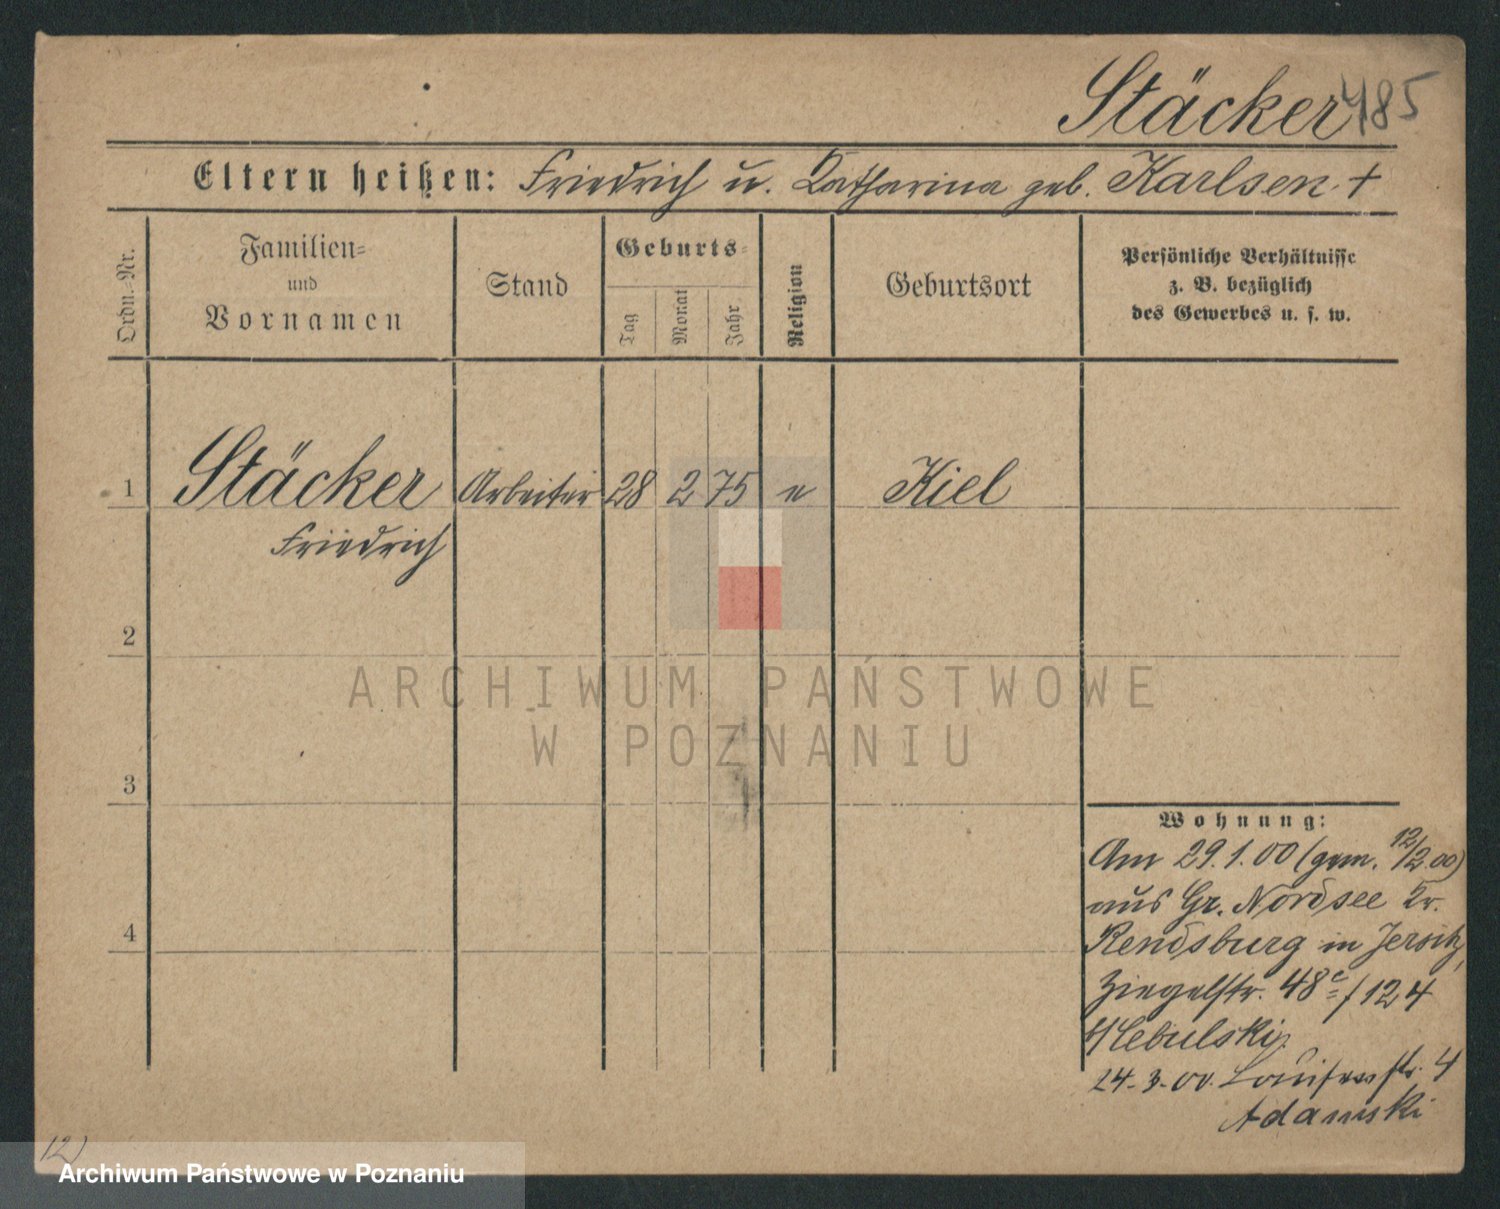 Stäcker 485
Eltern heißen: Friedrich u. Katharina geb. Karlsen +
Ordn.-Nr.
Familien-
und
Vornamen
Stand
Geburts-
Tag
Monat
Jahr
Religion
Geburtsort
Persönliche Verhältnisse
z. B. bezüglich
des Gewerbes u. s. w.
1 Stäcker Arbeiter 28 2 75 e Kiel
Friedrich
2
ARCHIWUM PAŃSTWOWE
W POZNANIU
3
Wohnung:
Am 29.1.00 (gem. 12/2.00)
aus Gr. Nordsee Kr.
4
Rendsburg in Jersitz,
Ziegelstr. 48 c / 124
b/ Cebulski.
24.3.00. Louisenstr. 4
Adamski
12)
Archiwum Państwowe w Poznaniu